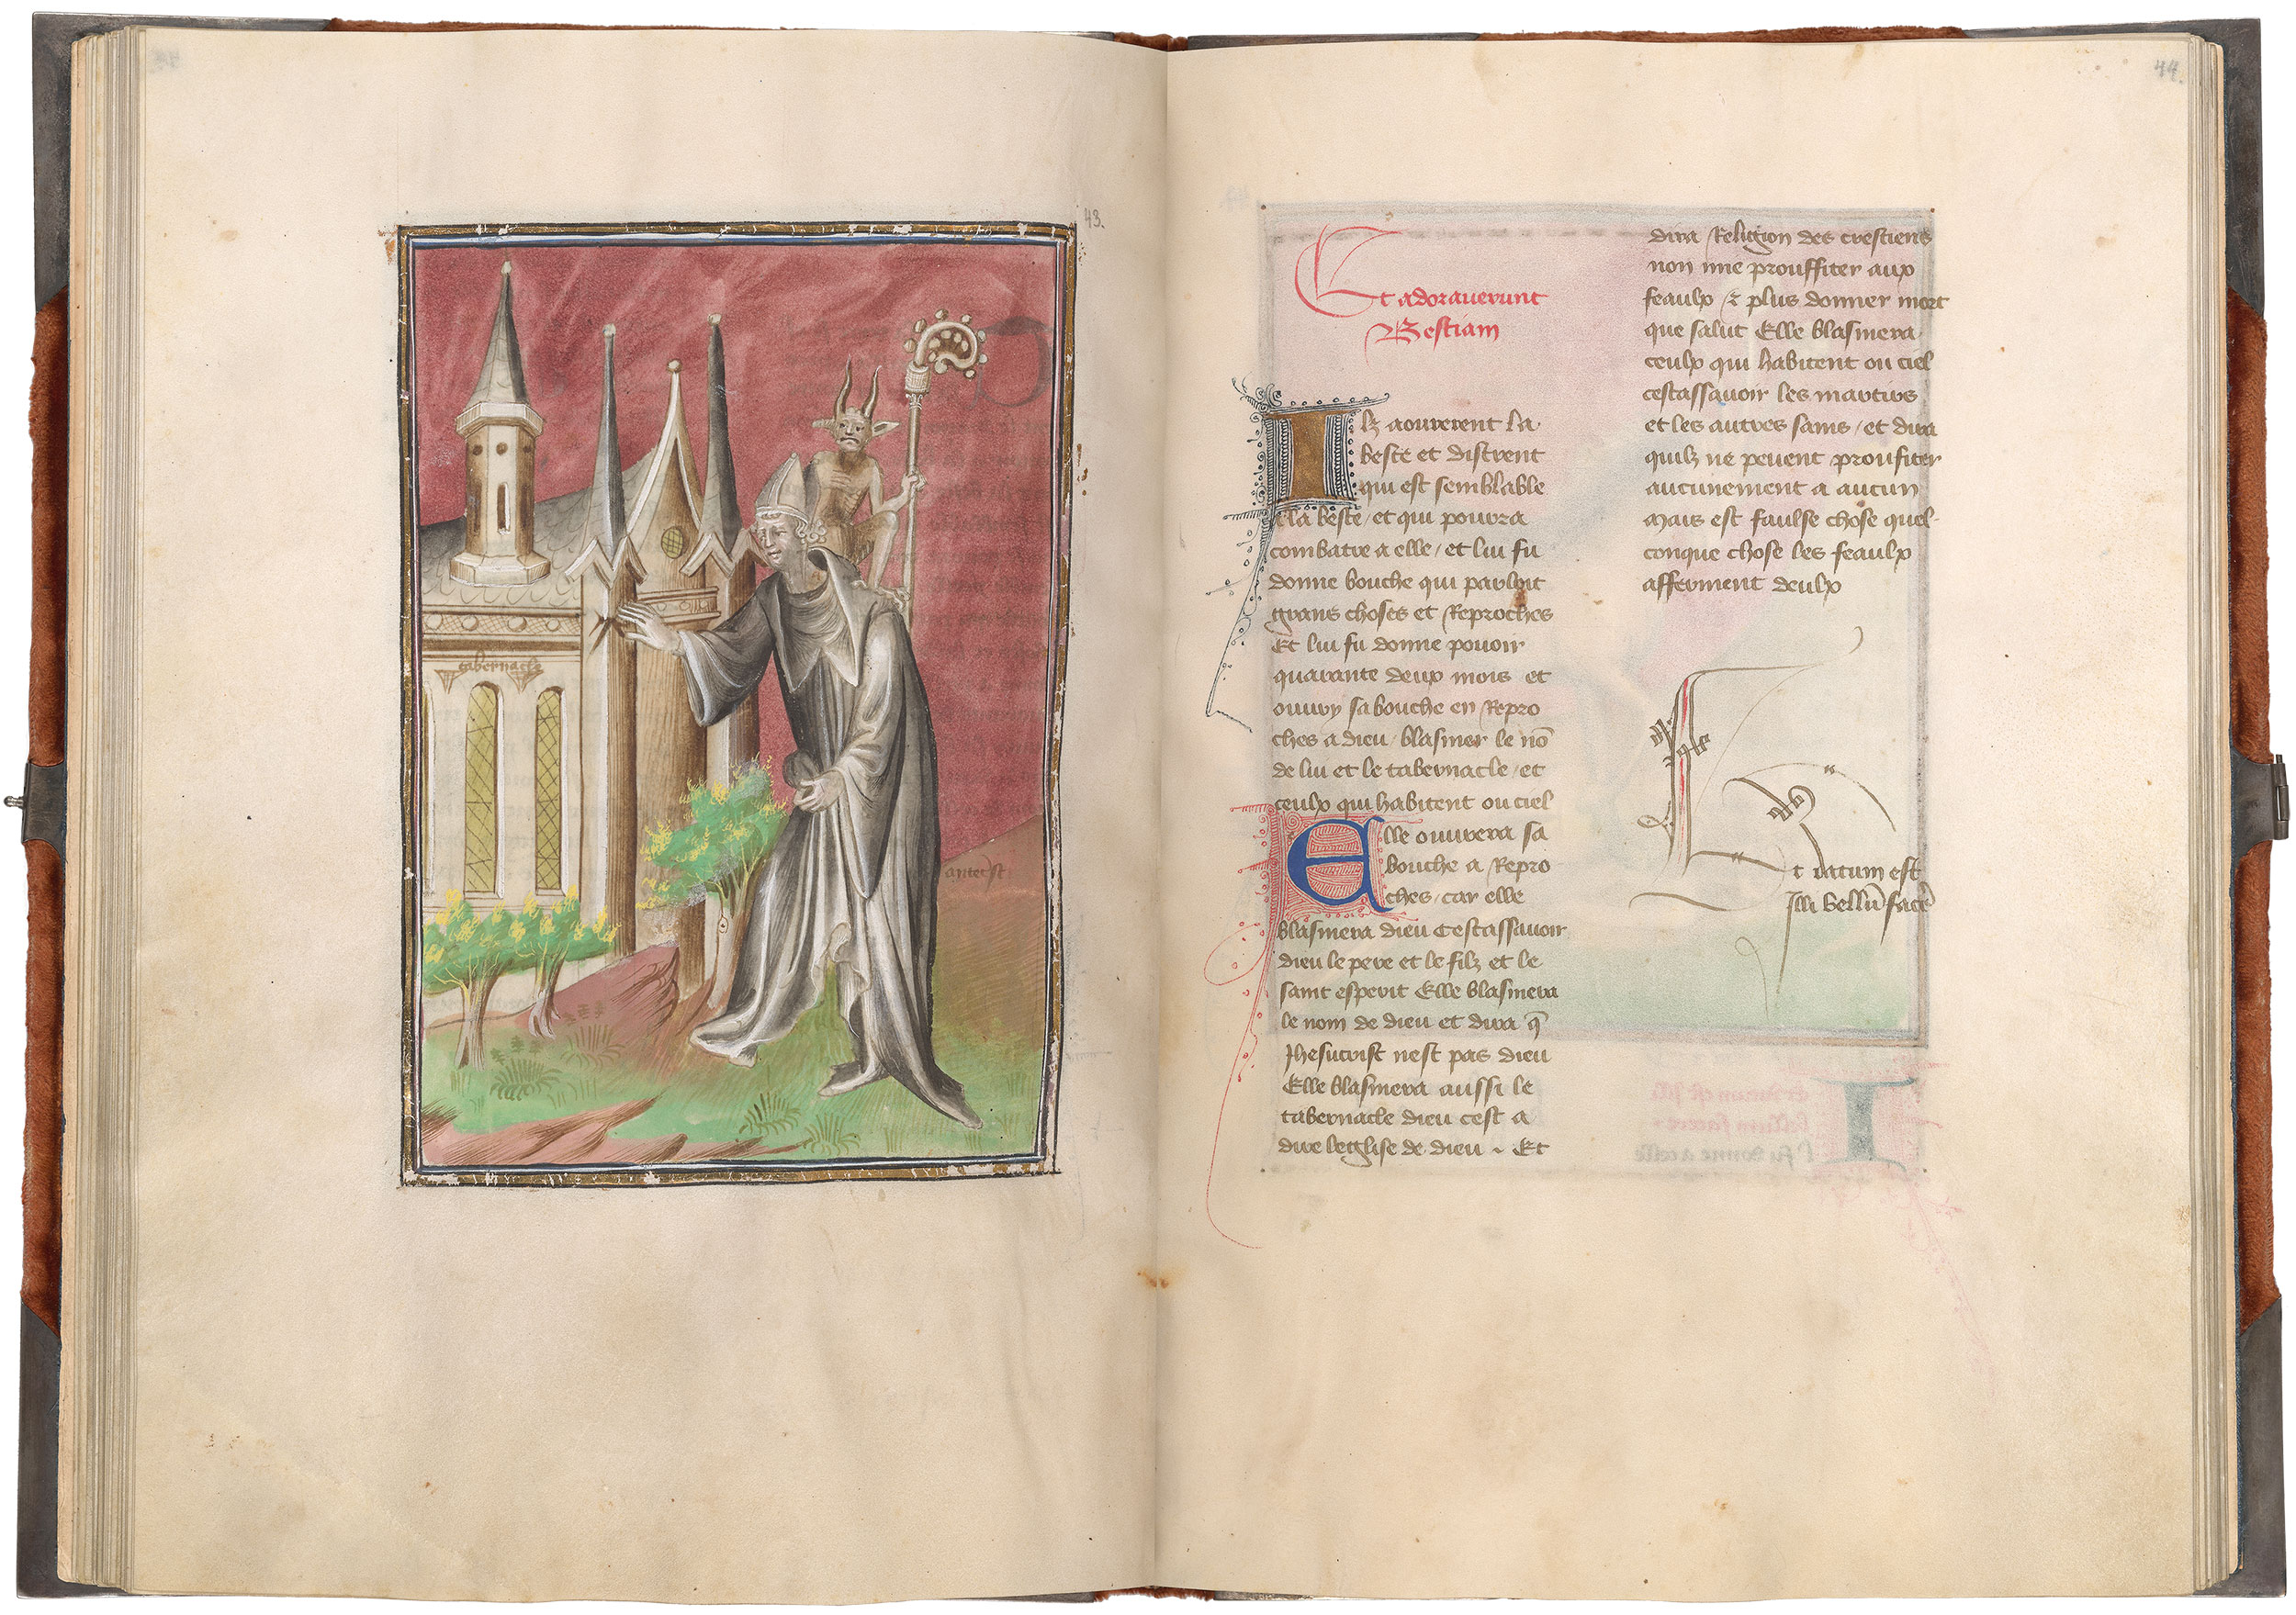 43.
tabernacle
antecrist
44.
Et adoraverunt
Bestiam
Ilz aourerent la
beste et distrent
qui est semblable
a la beste / et qui pourra
combatre a elle / et lui fu
donne bouche qui parloit
grans choses et Reproches
Et lui fu donne pouoir
quarante deux mois et
ouvry sa bouche en Repro
ches a dieu / blasmer le nō
de lui et le tabernacle / et
ceulx qui habitent ou ciel
Elle ouvrera sa
bouche a Repro
ches / car elle
blasmera dieu Cestassavoir
dieu le pere et le filz et le
saint esperit Elle blasmera
le nom de dieu et dira q̄
Jhesucrist nest pas dieu
Elle blasmera aussi le
tabernacle dieu cest a
dire leglise de dieu . Et
dira Religion des crestiens
non me prouffiter aux
feaulx / & plus donner mort
que salut Elle blasmera
ceulx qui habitent ou ciel
cestassavoir les martirs
et les autres sains / et dira
quilz ne pevent proufiter
aucunement a aucun
Mais est faulse chose quel-
conque chose les feaulx
afferment deulx
Et datum est
Illi bellū facē